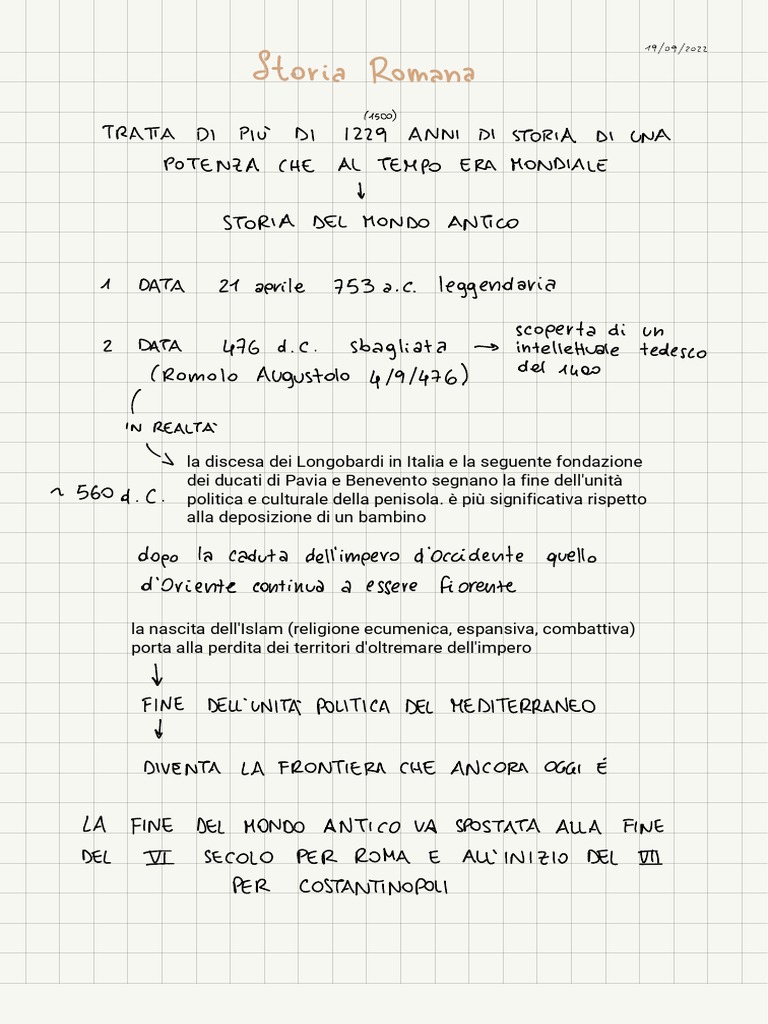 19/09/2022
Storia Romana
(1500)
TRATTA DI PIÙ DI 1229 ANNI DI STORIA DI UNA
POTENZA CHE AL TEMPO ERA MONDIALE
↓
STORIA DEL MONDO ANTICO
1 DATA 21 aprile 753 a.C. leggendaria
2 DATA 476 d.C. sbagliata → scoperta di un
intellettuale tedesco
del 1400
(Romolo Augustolo 4/9/476)
IN REALTÀ
~ 560 d.C.
la discesa dei Longobardi in Italia e la seguente fondazione
dei ducati di Pavia e Benevento segnano la fine dell'unità
politica e culturale della penisola. è più significativa rispetto
alla deposizione di un bambino
dopo la caduta dell'impero d'Occidente quello
d'Oriente continua a essere fiorente
la nascita dell'Islam (religione ecumenica, espansiva, combattiva)
porta alla perdita dei territori d'oltremare dell'impero
↓
FINE DELL'UNITÀ POLITICA DEL MEDITERRANEO
↓
DIVENTA LA FRONTIERA CHE ANCORA OGGI É
LA FINE DEL MONDO ANTICO VA SPOSTATA ALLA FINE
DEL VI SECOLO PER ROMA E ALL'INIZIO DEL VII
PER COSTANTINOPOLI